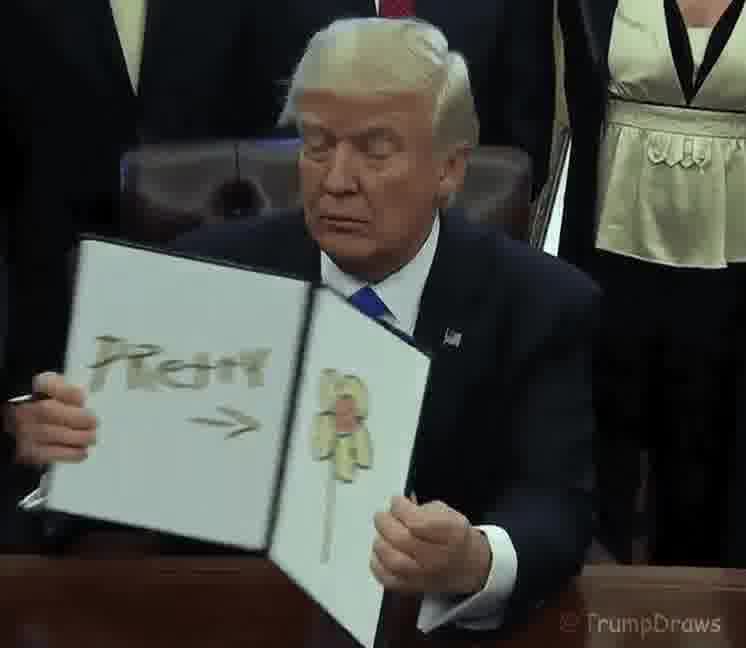 PRetty
→
© TrumpDraws